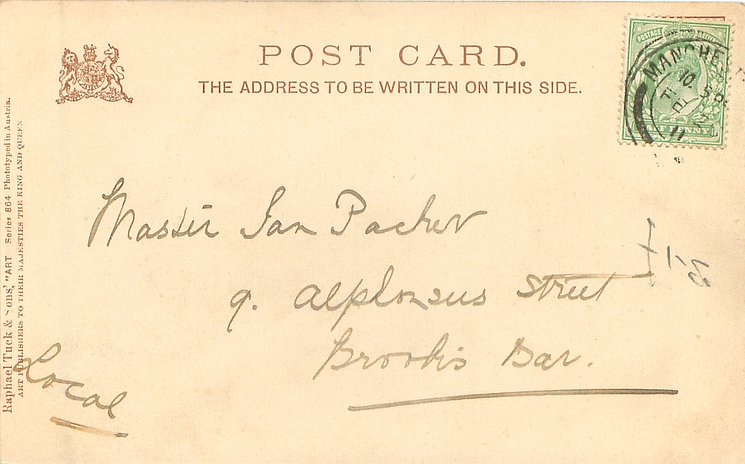 POST CARD.
THE ADDRESS TO BE WRITTEN ON THIS SIDE.
POSTAGE
MANCHE
10.
FE 2
11
PENNY
Master Ian Packer
9. Alphonsus Street
Brooks's Bar.
Local
Raphael Tuck & Sons' "ART" Series 864 Phototyped in Austria.
ART PUBLISHERS TO THEIR MAJESTIES THE KING AND QUEEN